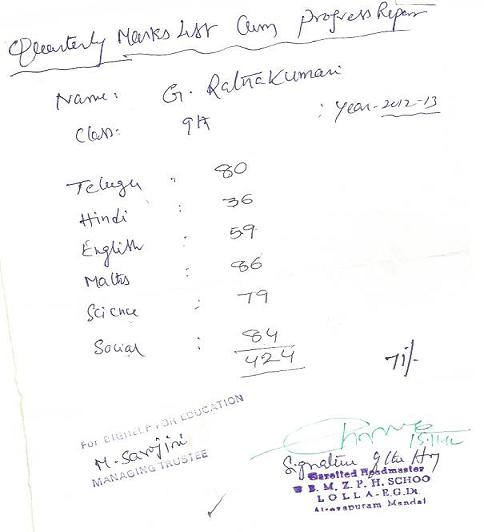 Quarterly Marks List Cum Progress Report
Name: G. Ratnakumari
Class: 9th : Year-2012-13
Telugu : 80
Hindi : 36
English : 59
Maths : 86
Science : 79
Social : 84
424 71/-
For BIGHELP FOR EDUCATION
M. Sarojini
MANAGING TRUSTEE
15.11.12
Signature of the HM
Gazetted Headmaster
B. M. Z. P. H. SCHOO
LOLLA-E.G.Dt.
Atreyapuram Mandal